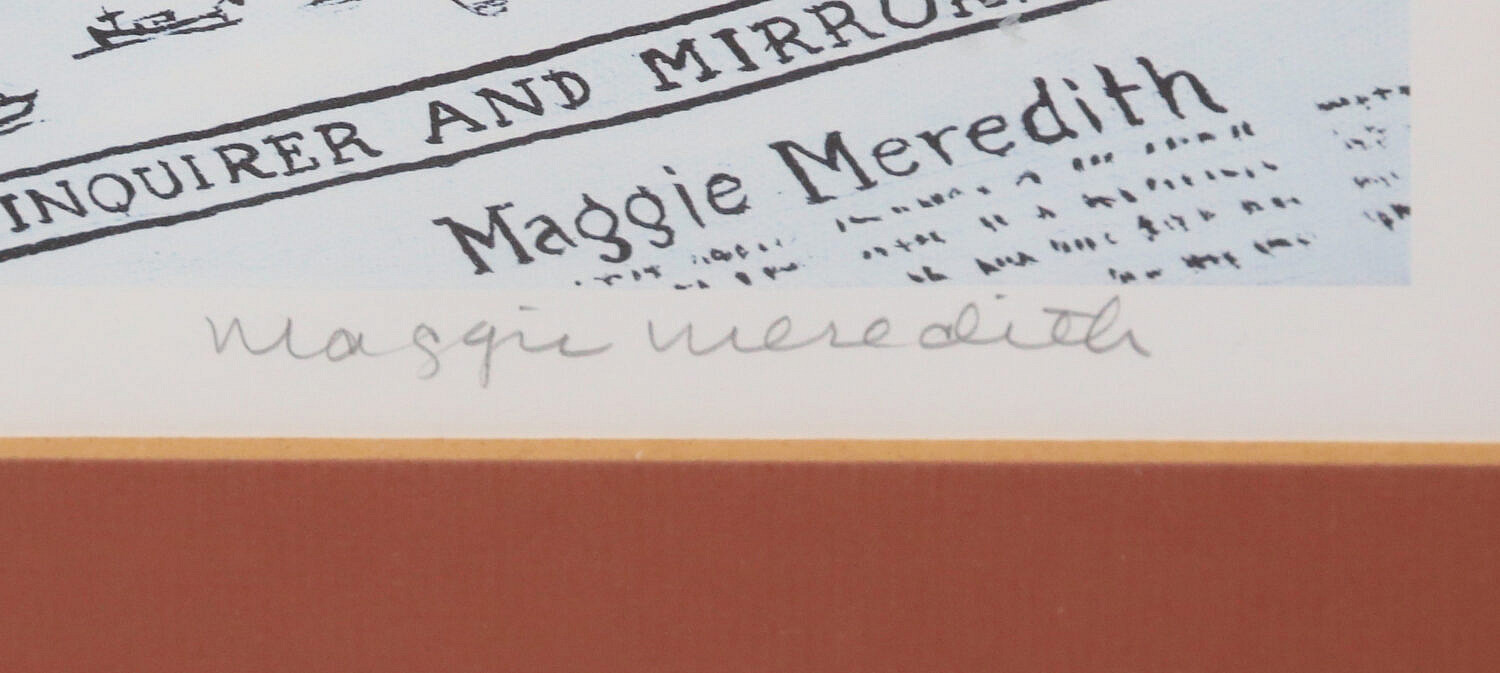 INQUIRER AND MIRROR
Maggie Meredith
Maggie Meredith